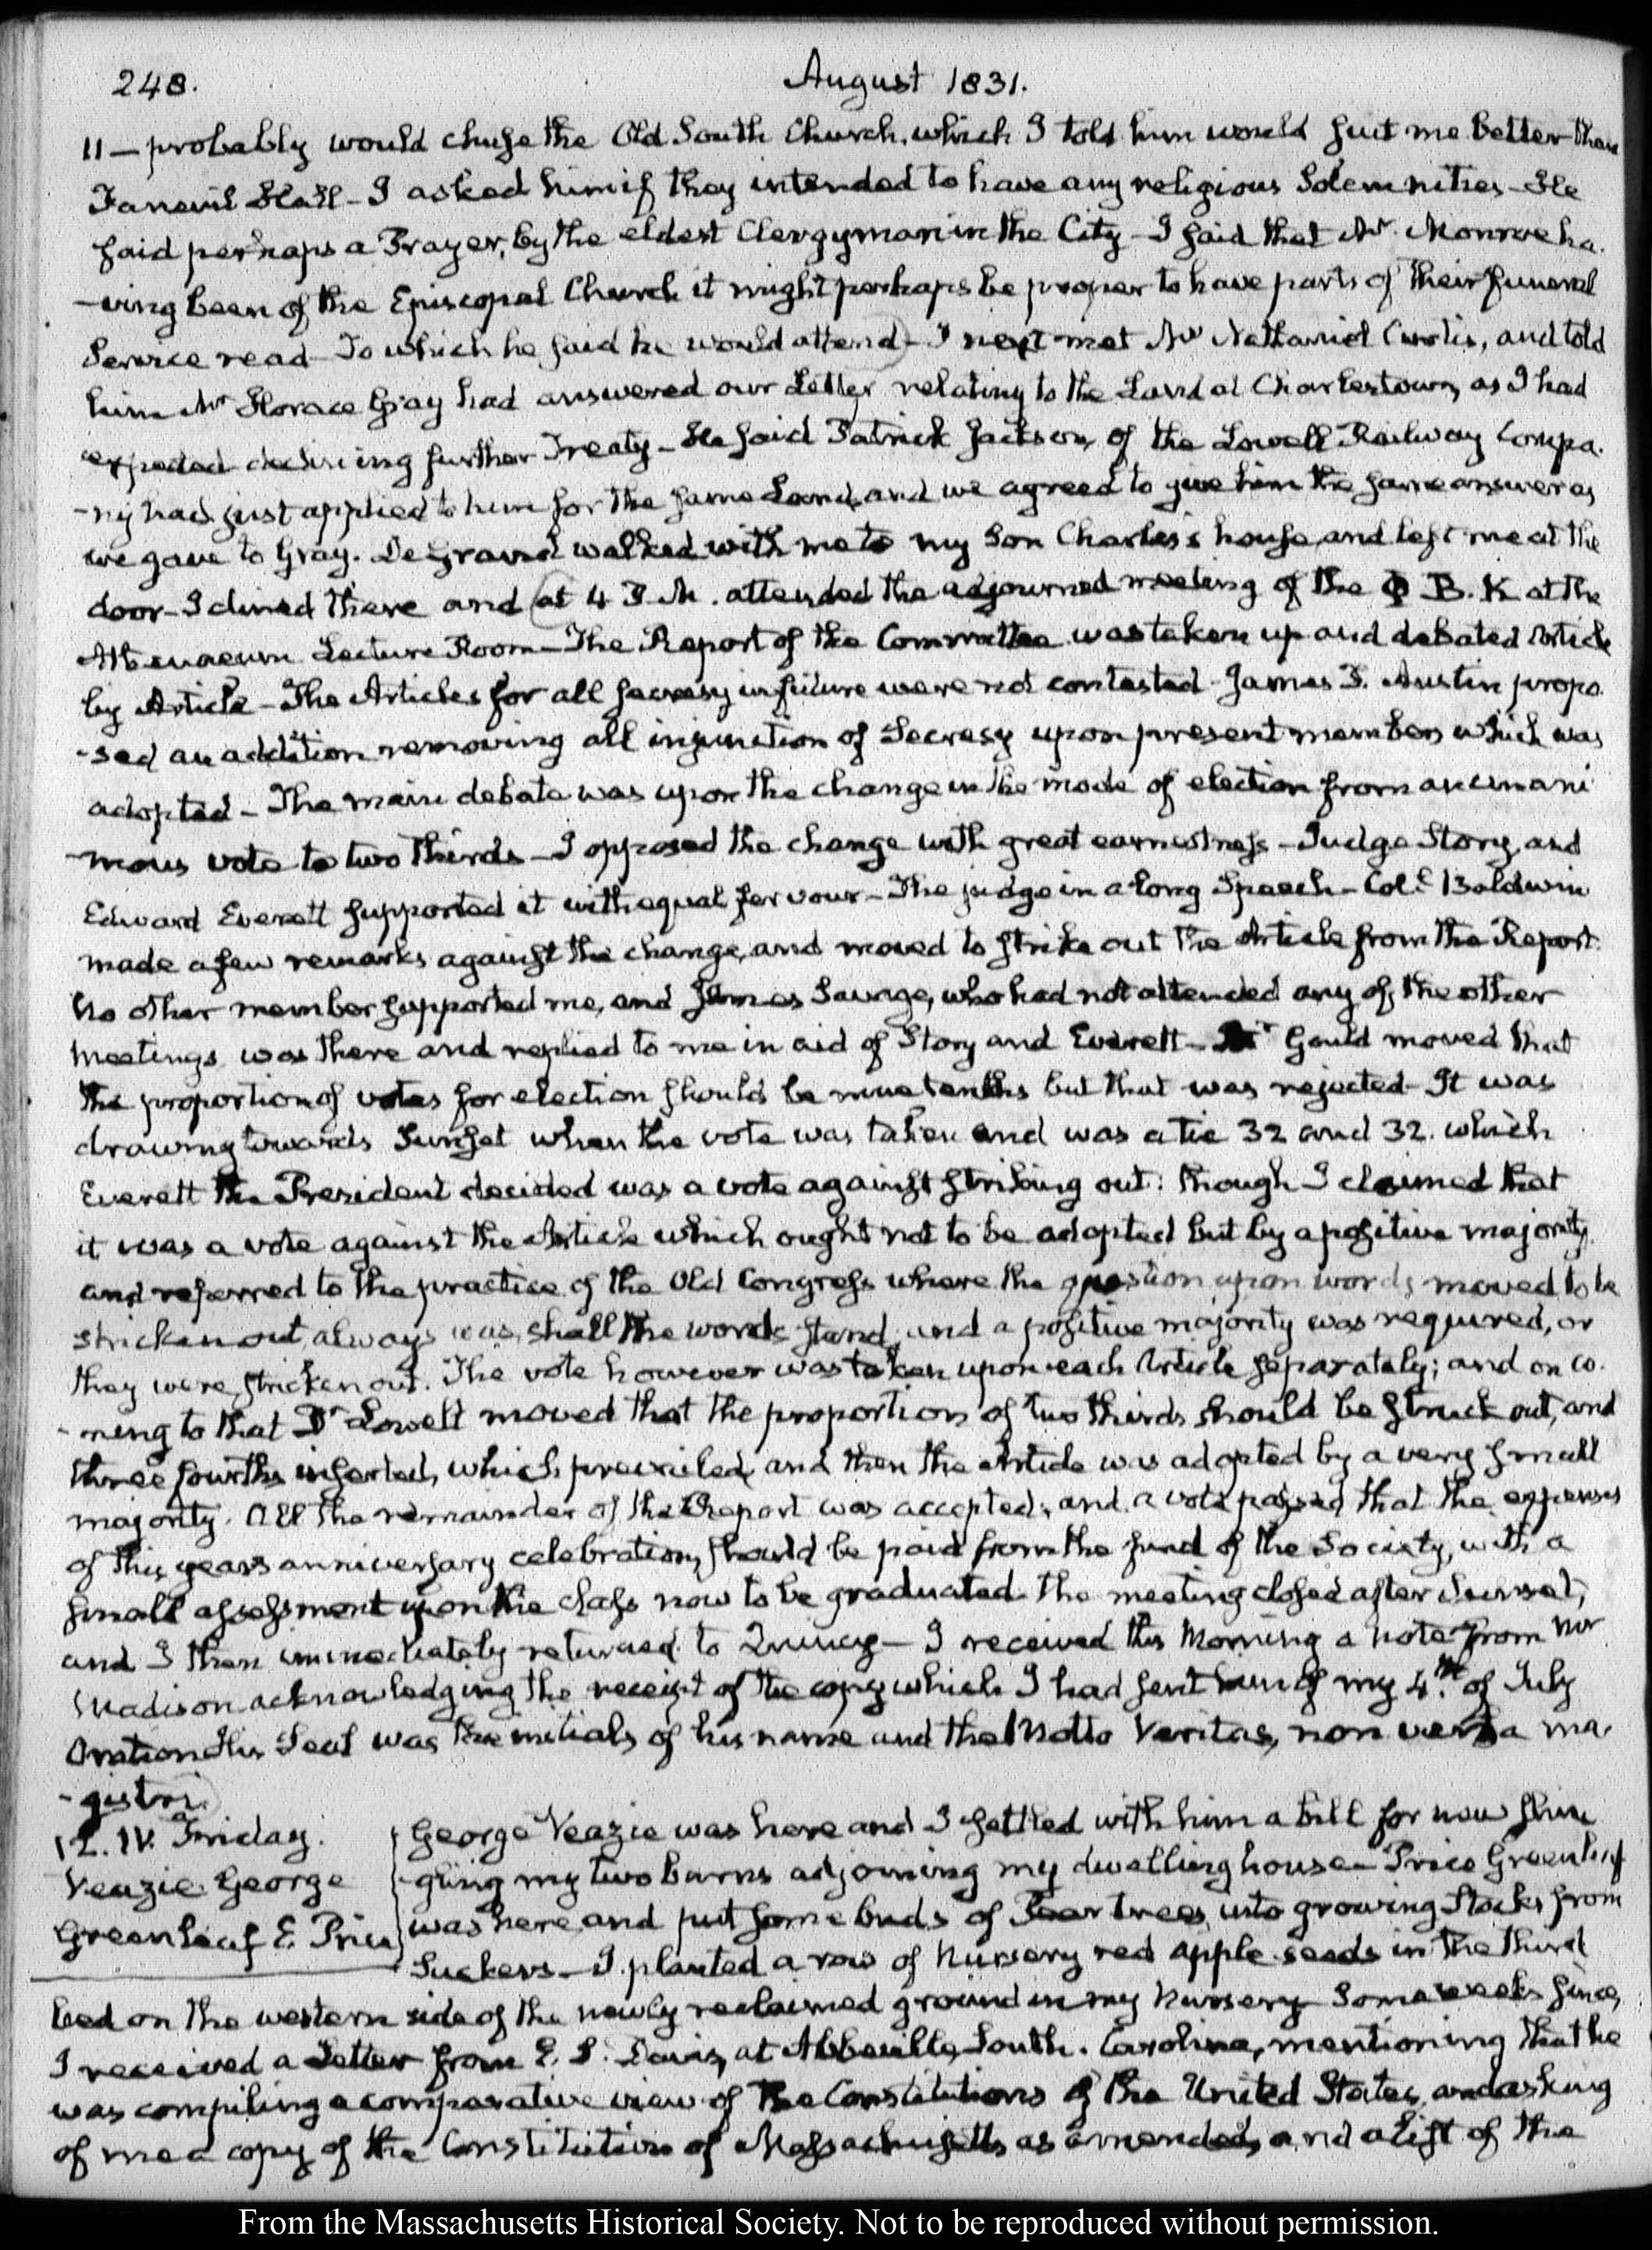 248.
August 1831.
11 — probably would chuse the Old South Church, which I told him would suit me better than
Faneuil Hall – I asked him if they intended to have any religious Solemnities – He
said perhaps a Prayer, by the eldest Clergyman in the City – I said that Mr. Monroe ha-
-ving been of the Episcopal Church it might perhaps be proper to have parts of their funeral
Service read – To which he said he would attend – I next met Mr Nathaniel Curtis, and told
him Mr Horace Gray had answered our Letter relating to the Land at Charlestown, as I had
expected declining further Treaty – He said Patrick Jackson, of the Lowell Railway Compa-
-ny had just applied to him for the same Land, and we agreed to give him the same answer as
we gave to Gray. DeGrand walked with me to my Son Charles's house, and left me at the
door – I dined there and at 4 P.M. attended the adjourned meeting of the Φ B. K at the
Athenaeum Lecture Room – The Report of the Committee was taken up and debated Article
by Article – The Articles for all secresy in future were not contested – James T. Austin propo-
-sed an addition removing all injunction of Secresy upon present members which was
adopted – The main debate was upon the change in the mode of election from an unani-
-mous vote to two thirds – I opposed the change with great earnestness – Judge Story, and
Edward Everett supported it with equal fervour – The judge in a long Speech – Col.l Baldwin
made a few remarks against the change, and moved to strike out the Article from the Report.
No other member supported me, and James Savage, who had not attended any of the other
meetings was there and replied to me in aid of Story and Everett – Gould moved that
the proportion of votes for election should be nine tenths but that was rejected – It was
drawing towards Sunset when the vote was taken and was a tie 32 and 32. which
Everett the President decided was a vote against striking out: though I claimed that
it was a vote against the Article which ought not to be adopted but by a positive majority,
and referred to the practice of the Old Congress where the question upon words moved to be
stricken out, always was, shall the words stand, and a positive majority was required, or
they were stricken out. The vote however was taken upon each Article separately; and on co-
-ming to that Dr Lowell moved that the proportion of two thirds should be struck out, and
three fourths inserted, which prevailed, and then the Article was adopted by a very small
majority. All the remainder of the Report was accepted; and a vote passed that the expenses
of this years anniversary celebration, should be paid from the fund of the Society, with a
small assessment upon the class now to be graduated – the meeting closed after Sunset,
and I then immediately returned to Quincy – I received this Morning a Note from Mr
Madison acknowledging the receipt of the copy which I had sent him of my 4th. of July
Oration. His Seal was the initials of his name and the Motto Veritas, non verba ma-
-gistri.
12. IV. Friday.
Veazie George
Greenleaf E. Price
George Veazie was here and I settled with him a bill for new shin-
-gling my two barns adjoining my dwelling house – Price Greenleaf
was here, and put some buds of Pear trees, into growing Stocks from
Suckers – I planted a row of Nursery red apple seeds in the third
bed on the western side of the newly reclaimed ground in my Nursery – Some weeks since,
I received a Letter from Davis, at Abbeville, South. Carolina, mentioning that he
was compiling a comparative view of the Constitutions of the United States, and asking
of me a copy of the Constitution of Massachusetts as amended, and a list of the
From the Massachusetts Historical Society. Not to be reproduced without permission.